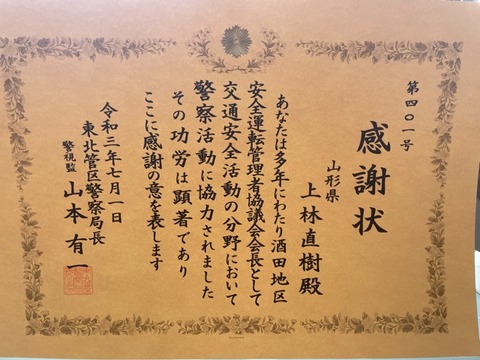 第四〇一号
感謝状
山形県
上林直樹殿
あなたは多年にわたり酒田地区
安全運転管理者協議会会長として
交通安全活動の分野において
警察活動に協力されました
その功労は顕著であり
ここに感謝の意を表します
令和三年七月一日
東北管区警察局長
警視監 山本有一